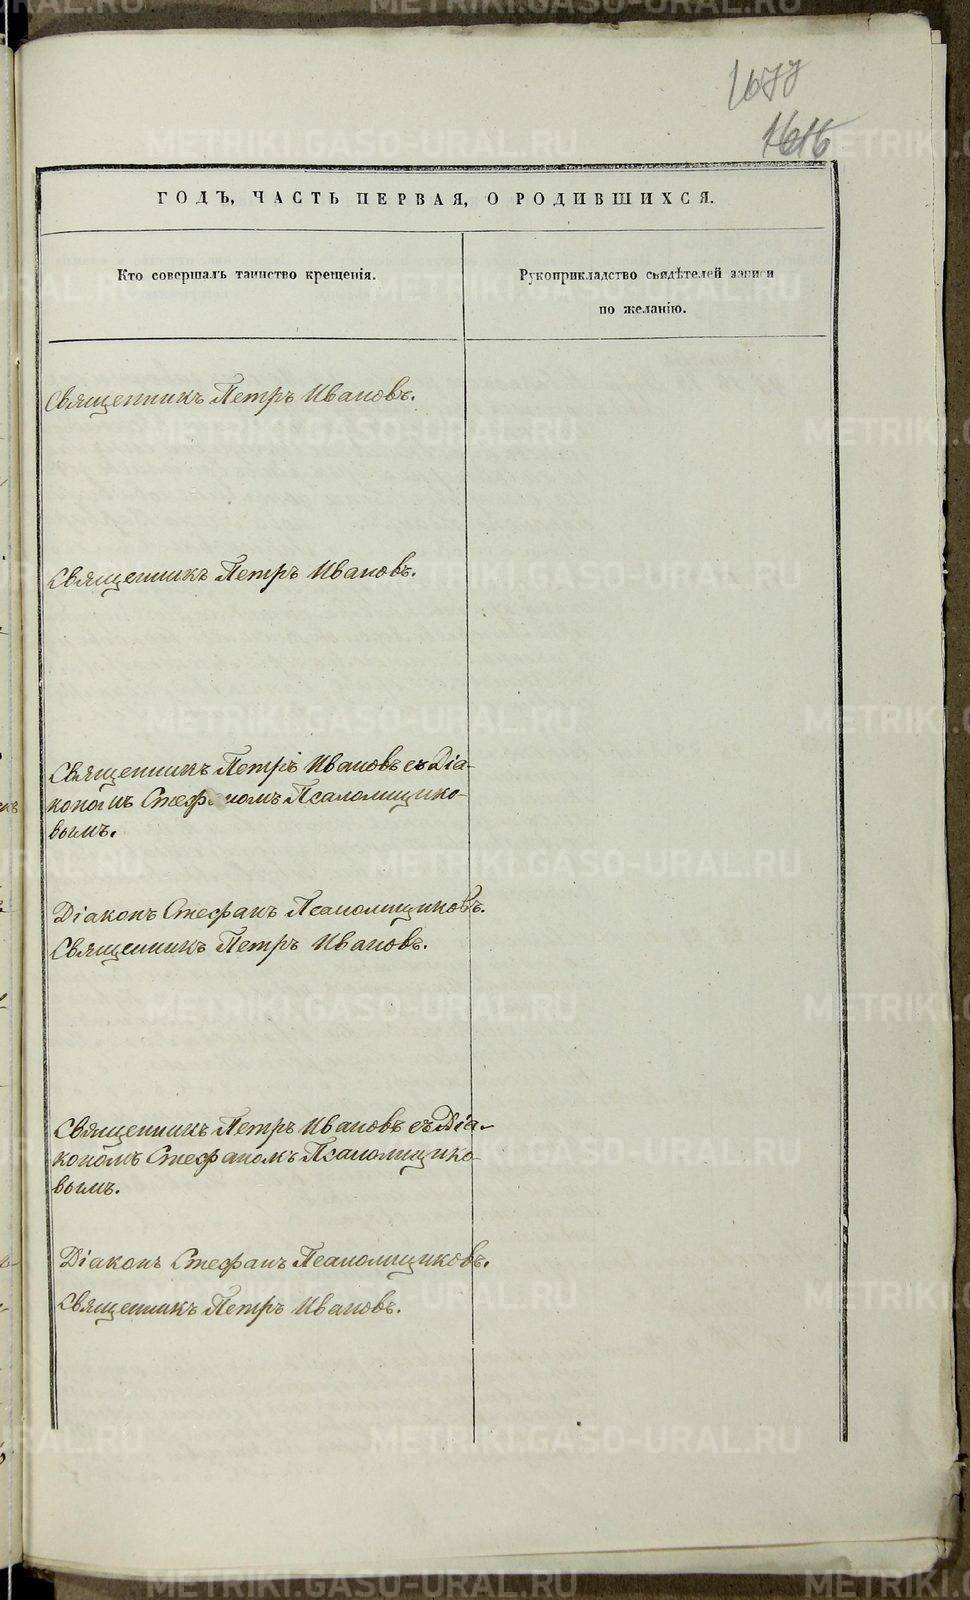 1677
1616
ГОДЪ, ЧАСТЬ ПЕРВАЯ, О РОДИВШИХСЯ.
Кто совершалъ таинство крещенія.
Рукоприкладство свидѣтелей записи
по желанію.
Священникъ Петръ Ивановъ.
Священникъ Петръ Ивановъ.
Священникъ Петръ Ивановъ съ Діа-
кономъ Стефаномъ Псаломщико-
вымъ.
Діаконъ Стефанъ Псаломщиковъ.
Священникъ Петръ Ивановъ.
Священникъ Петръ Ивановъ съ Діа-
кономъ Стефаномъ Псаломщико-
вымъ.
Діаконъ Стефанъ Псаломщиковъ.
Священникъ Петръ Ивановъ.
METRIKI.GASO-URAL.RU